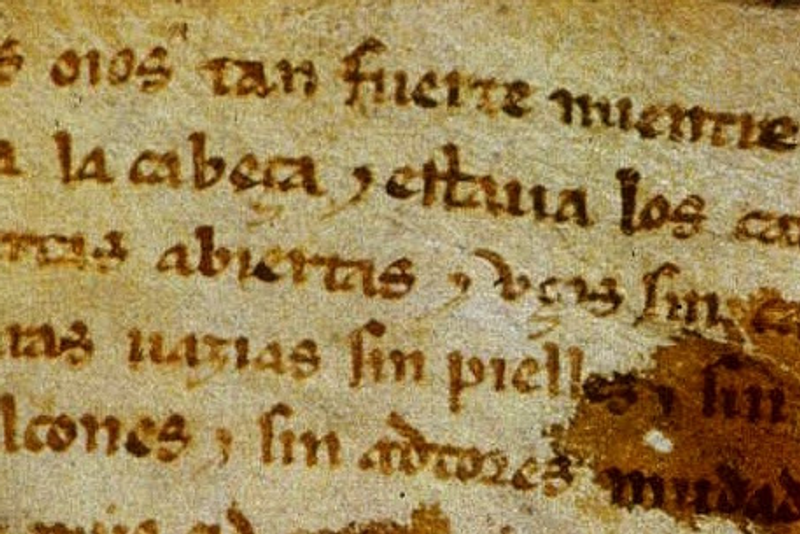 s oios tan fuerte mientre
a la cabeça ⁊ estaua los ca
rtas abiertas ⁊ vços sin
uas uazias sin pielles ⁊ sin
lcones ⁊ sin adtores mudad